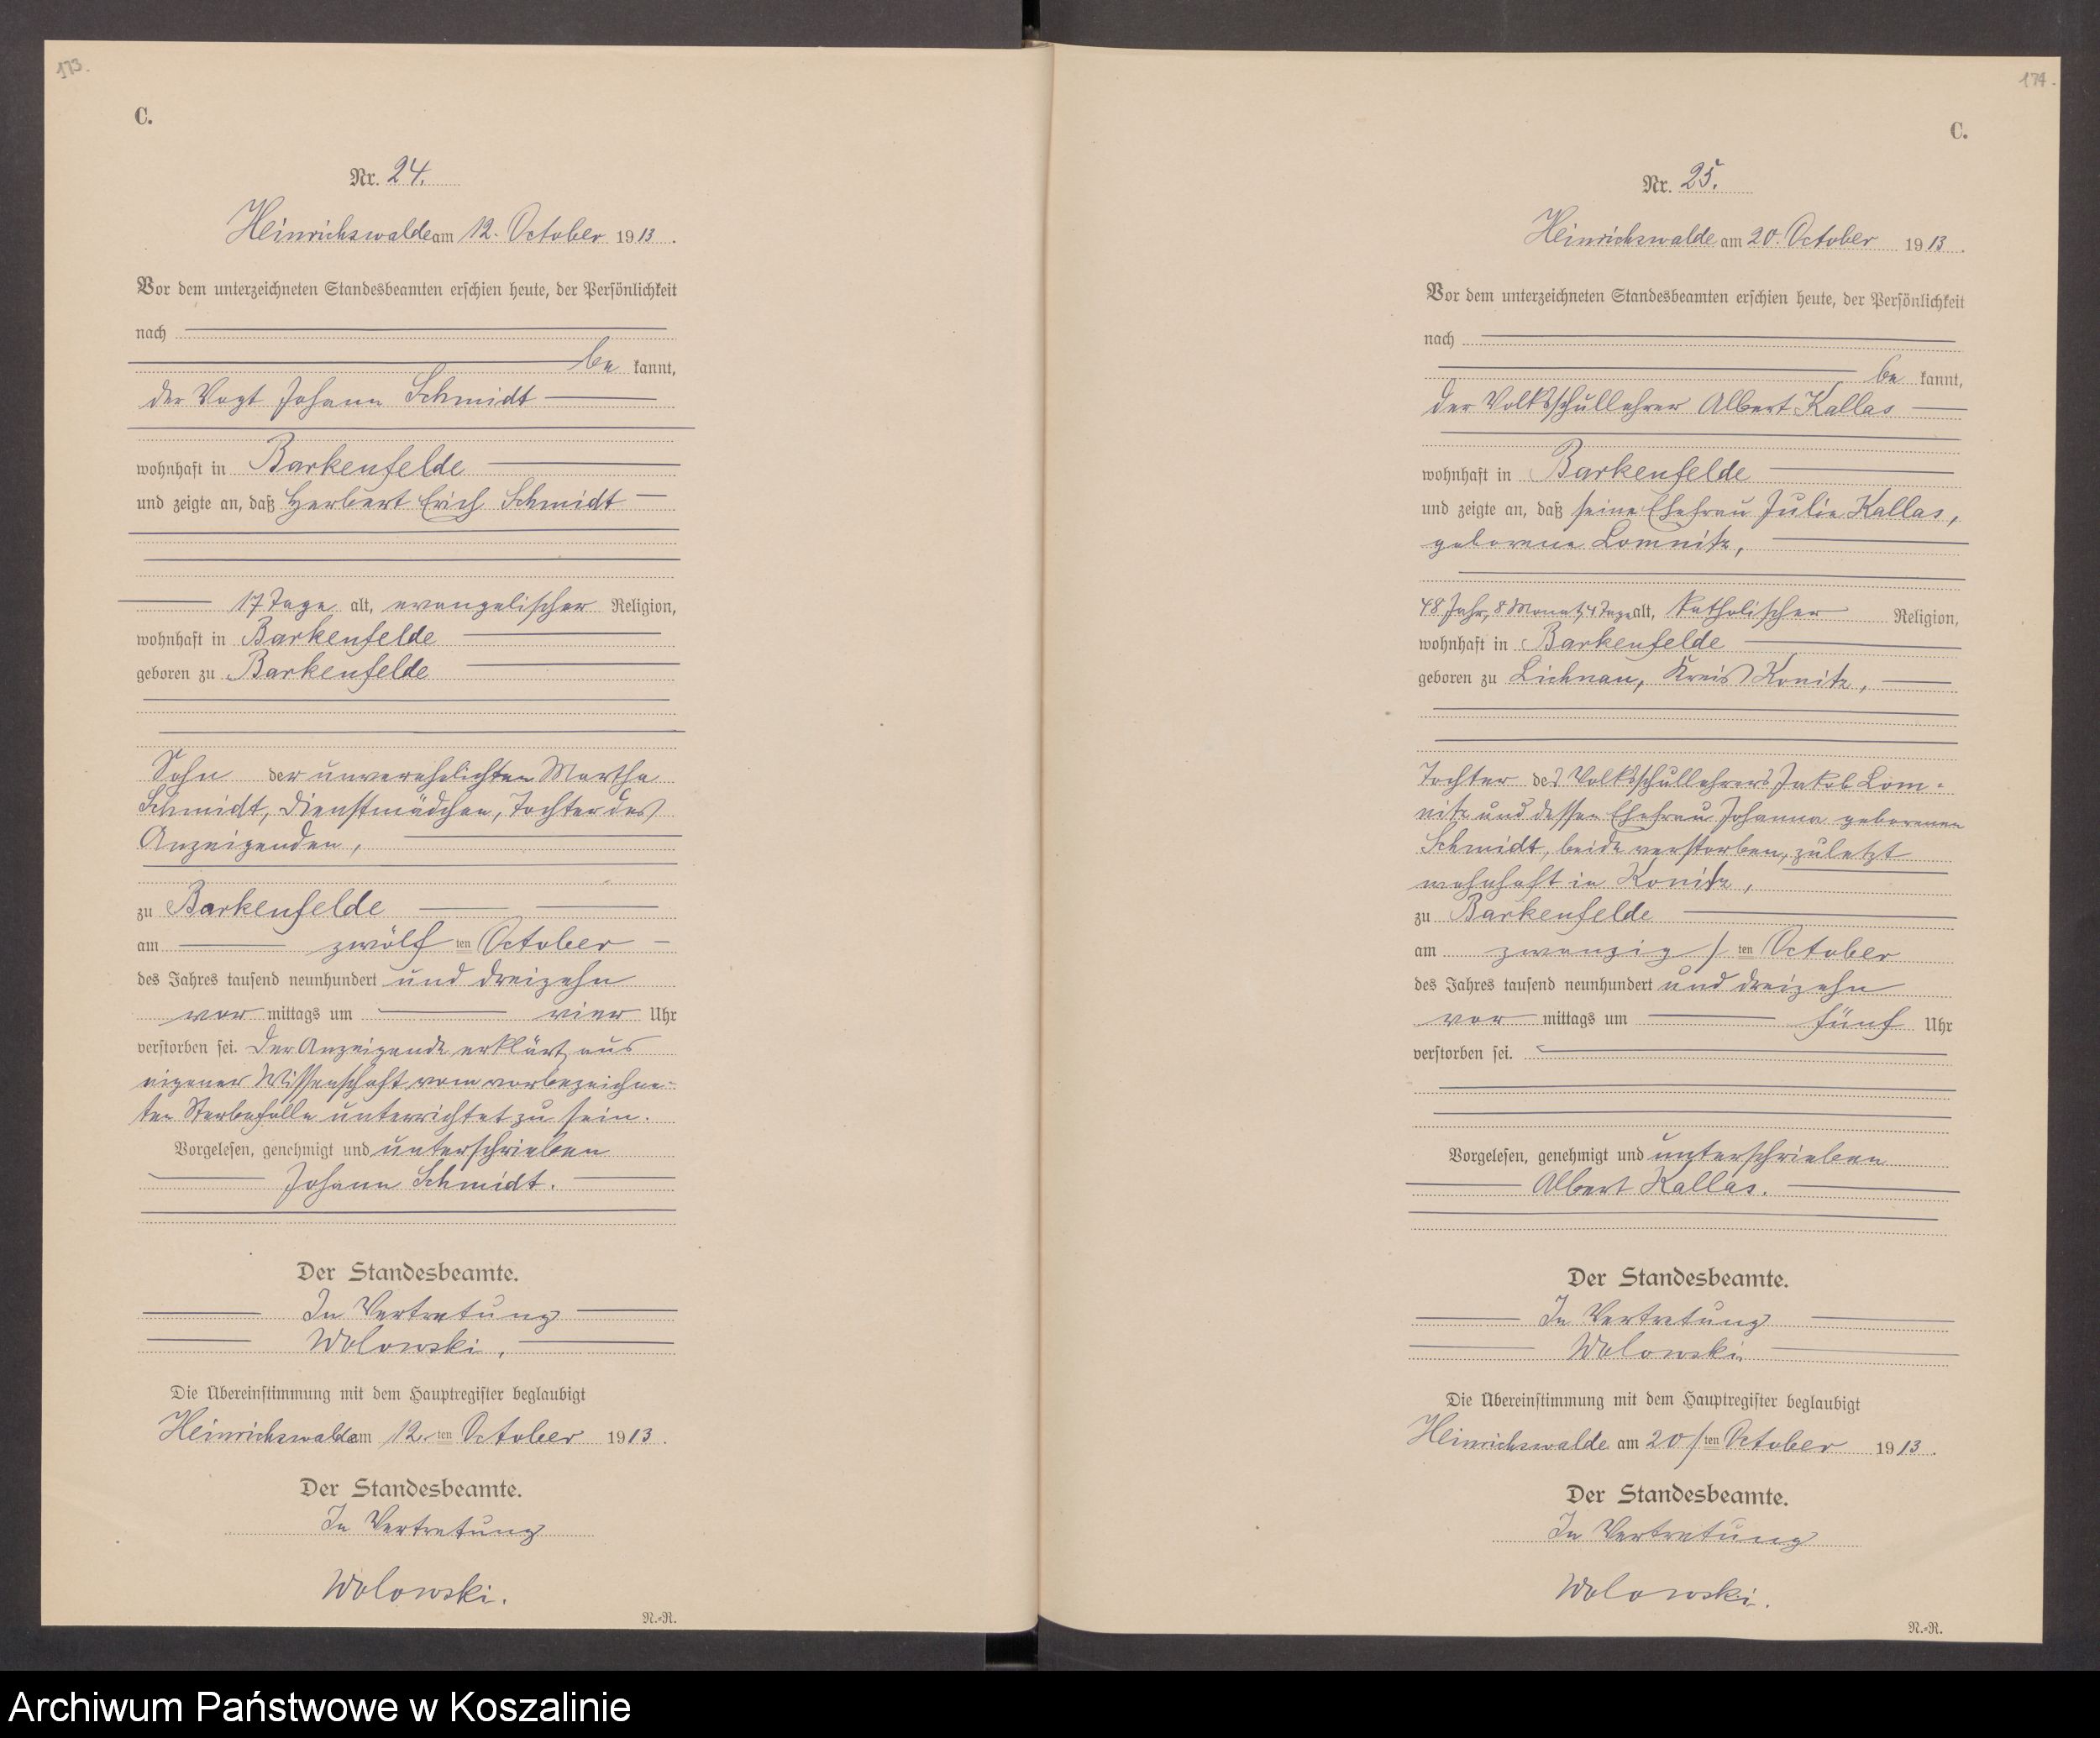 173.
C.
Nr. 24.
Heinrichswalde am 12. October 1913.
Vor dem unterzeichneten Standesbeamten erschien heute, der Persönlichkeit
nach
be kannt,
der Vogt Johann Schmidt
wohnhaft in Barkenfelde
und zeigte an, daß Herbert Erich Schmidt
17 Tage alt, evangelischer Religion,
wohnhaft in Barkenfelde
geboren zu Barkenfelde
Sohn der unverehelichten Martha
Schmidt, Dienstmädchen, Tochter des
Anzeigenden,
zu Barkenfelde
am zwölf ten October
des Jahres tausend neunhundert und dreizehn
vor mittags um vier Uhr
verstorben sei. Der Anzeigende erklärt, aus
eigener Wissenschaft vom vorbezeichne-
ten Sterbefalle unterrichtet zu sein.
Vorgelesen, genehmigt und unterschrieben
Johann Schmidt.
Der Standesbeamte.
In Vertretung
Wolowski.
Die Übereinstimmung mit dem Hauptregister beglaubigt
Heinrichswalde am 12. ten October 1913.
Der Standesbeamte.
In Vertretung
Wolowski.
N.-R.
174.
C.
Nr. 25.
Heinrichswalde am 20. October 1913.
Vor dem unterzeichneten Standesbeamten erschien heute, der Persönlichkeit
nach
be kannt,
der Volksschullehrer Albert Kallas
wohnhaft in Barkenfelde
und zeigte an, daß seine Ehefrau Julie Kallas,
geborene Lomnitz,
48 Jahr, 8 Monat, 4 Tage alt, katholischer Religion,
wohnhaft in Barkenfelde
geboren zu Lichnau, Kreis Konitz,
Tochter des Volksschullehrers Jakob Lom-
nitz und dessen Ehefrau Johanna geborenen
Schmidt, beide verstorben, zuletzt
wohnhaft in Konitz,
zu Barkenfelde
am zwanzig s ten October
des Jahres tausend neunhundert und dreizehn
vor mittags um fünf Uhr
verstorben sei.
Vorgelesen, genehmigt und unterschrieben
Albert Kallas.
Der Standesbeamte.
In Vertretung
Wolowski.
Die Übereinstimmung mit dem Hauptregister beglaubigt
Heinrichswalde am 20 s ten October 1913.
Der Standesbeamte.
In Vertretung
Wolowski.
N.-R.
Archiwum Państwowe w Koszalinie